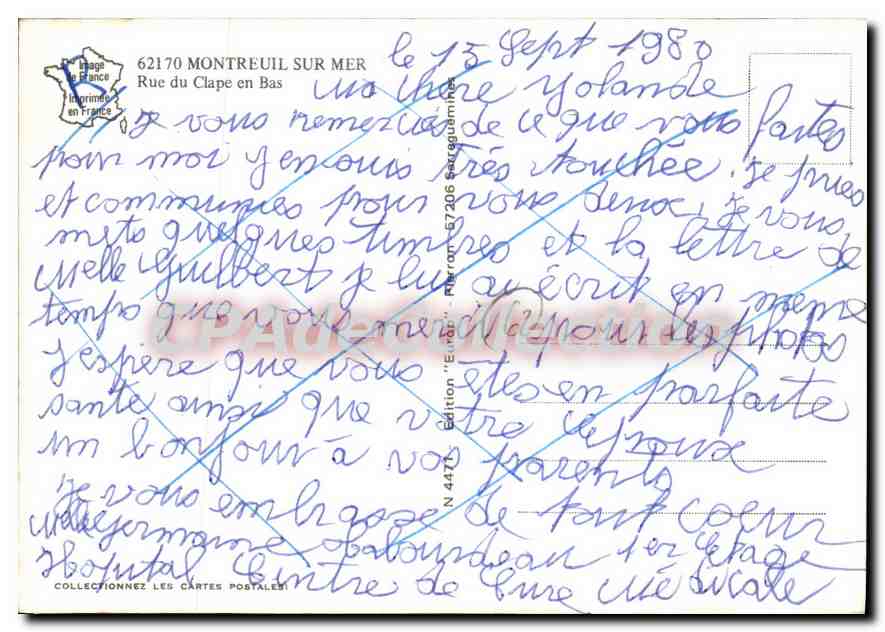 Une Image
de France
Imprimée
en France
62170 MONTREUIL SUR MER
Rue du Clape en Bas
le 15 Sept 1980
Ma Chère Yolande
Je vous remercies de ce que vous faites
pour moi J en suis très touchée. je pries
et communies pour vous deux, je vous
mets quelques timbres et la lettre de
Melle Guilbert je lui ai écrit en meme
temps que vous merci pour les photos
J espère que vous êtes en parfaite
santé ainsi que votre Epoux
un bonjour à vos parents
Je vous embrasse de tout coeur
Melle Germaine 1er Etage
Hopital Centre de Cure Médicale
COLLECTIONNEZ LES CARTES POSTALES
N 4471 - Edition "Europ" - Pierron - 57206 Sarreguemines
CPAdeCollection